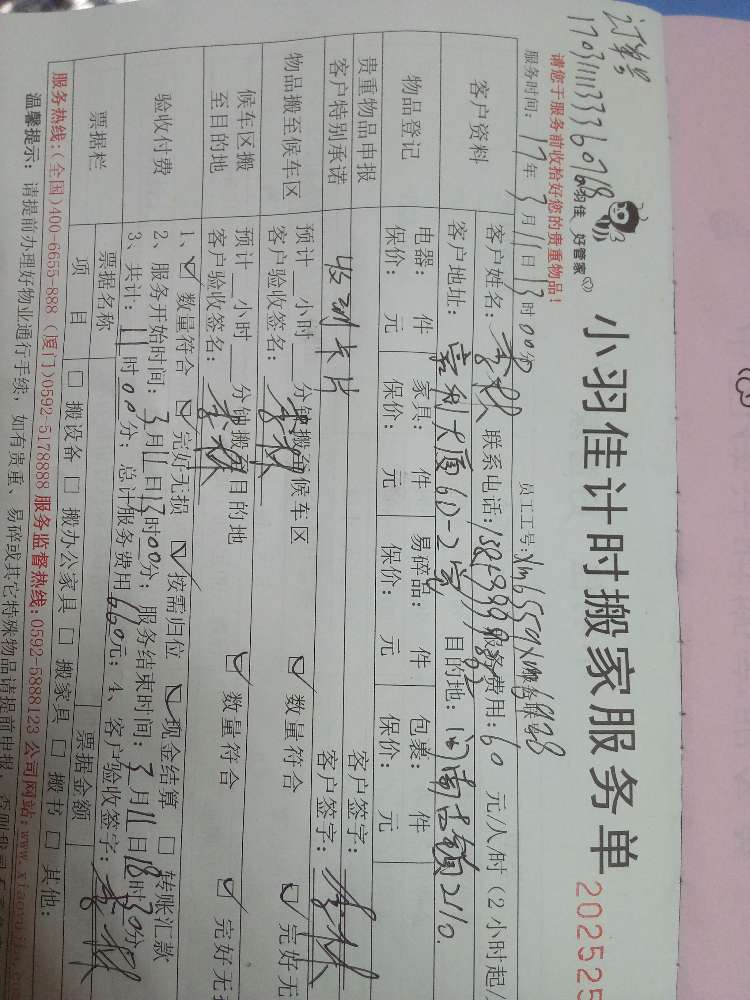 订单号
1703111133360768
小羽佳 好管家
小羽佳计时搬家服务单
202525
请您于服务前收拾好您的贵重物品!
服务时间: 17年3月11日13时00分 员工工号: xm6559 xm6998 服务联
客户资料 客户姓名: 联系电话: 服务费用: 60 元/人/时(2小时起/
客户地址: 6D-2 目的地: 2110.
物品登记 电器: 件 家具: 件 易碎品: 件 包裹: 件
保价: 元 保价: 元 保价: 元 保价: 元
贵重物品申报 客户签字:
客户特别承诺 卡片 客户签字:
物品搬至候车区 预计__小时__分钟搬至候车区 ☑ 数量符合 ☑ 完好无
客户验收签名:
候车区搬至目的地 预计__小时__分钟搬至目的地 ☑ 数量符合 ☑ 完好无
客户验收签名:
验收付费 1、☑ 数量符合 ☑ 完好无损 ☑ 按需归位 ☑ 现金结算 □ 转账汇款
2、服务开始时间: 3月11日13时00分; 服务结束时间: 3月11日18时30分
3、共计: 11时00分; 总计服务费用 660元; 4、客户验收签字:
票据栏 票据名称 票据金额
项目 □ 搬设备 □ 搬办公家具 □ 搬家具 □ 搬书 □ 其他:
服务热线:(全国)400-6655-888 (厦门)0592-5178888 服务监督热线:0592-5888123 公司网站:www.xiaoyujia.com
温馨提示: 请提前办理好物业通行手续, 如有贵重、易碎或其它特殊物品请提前申报,